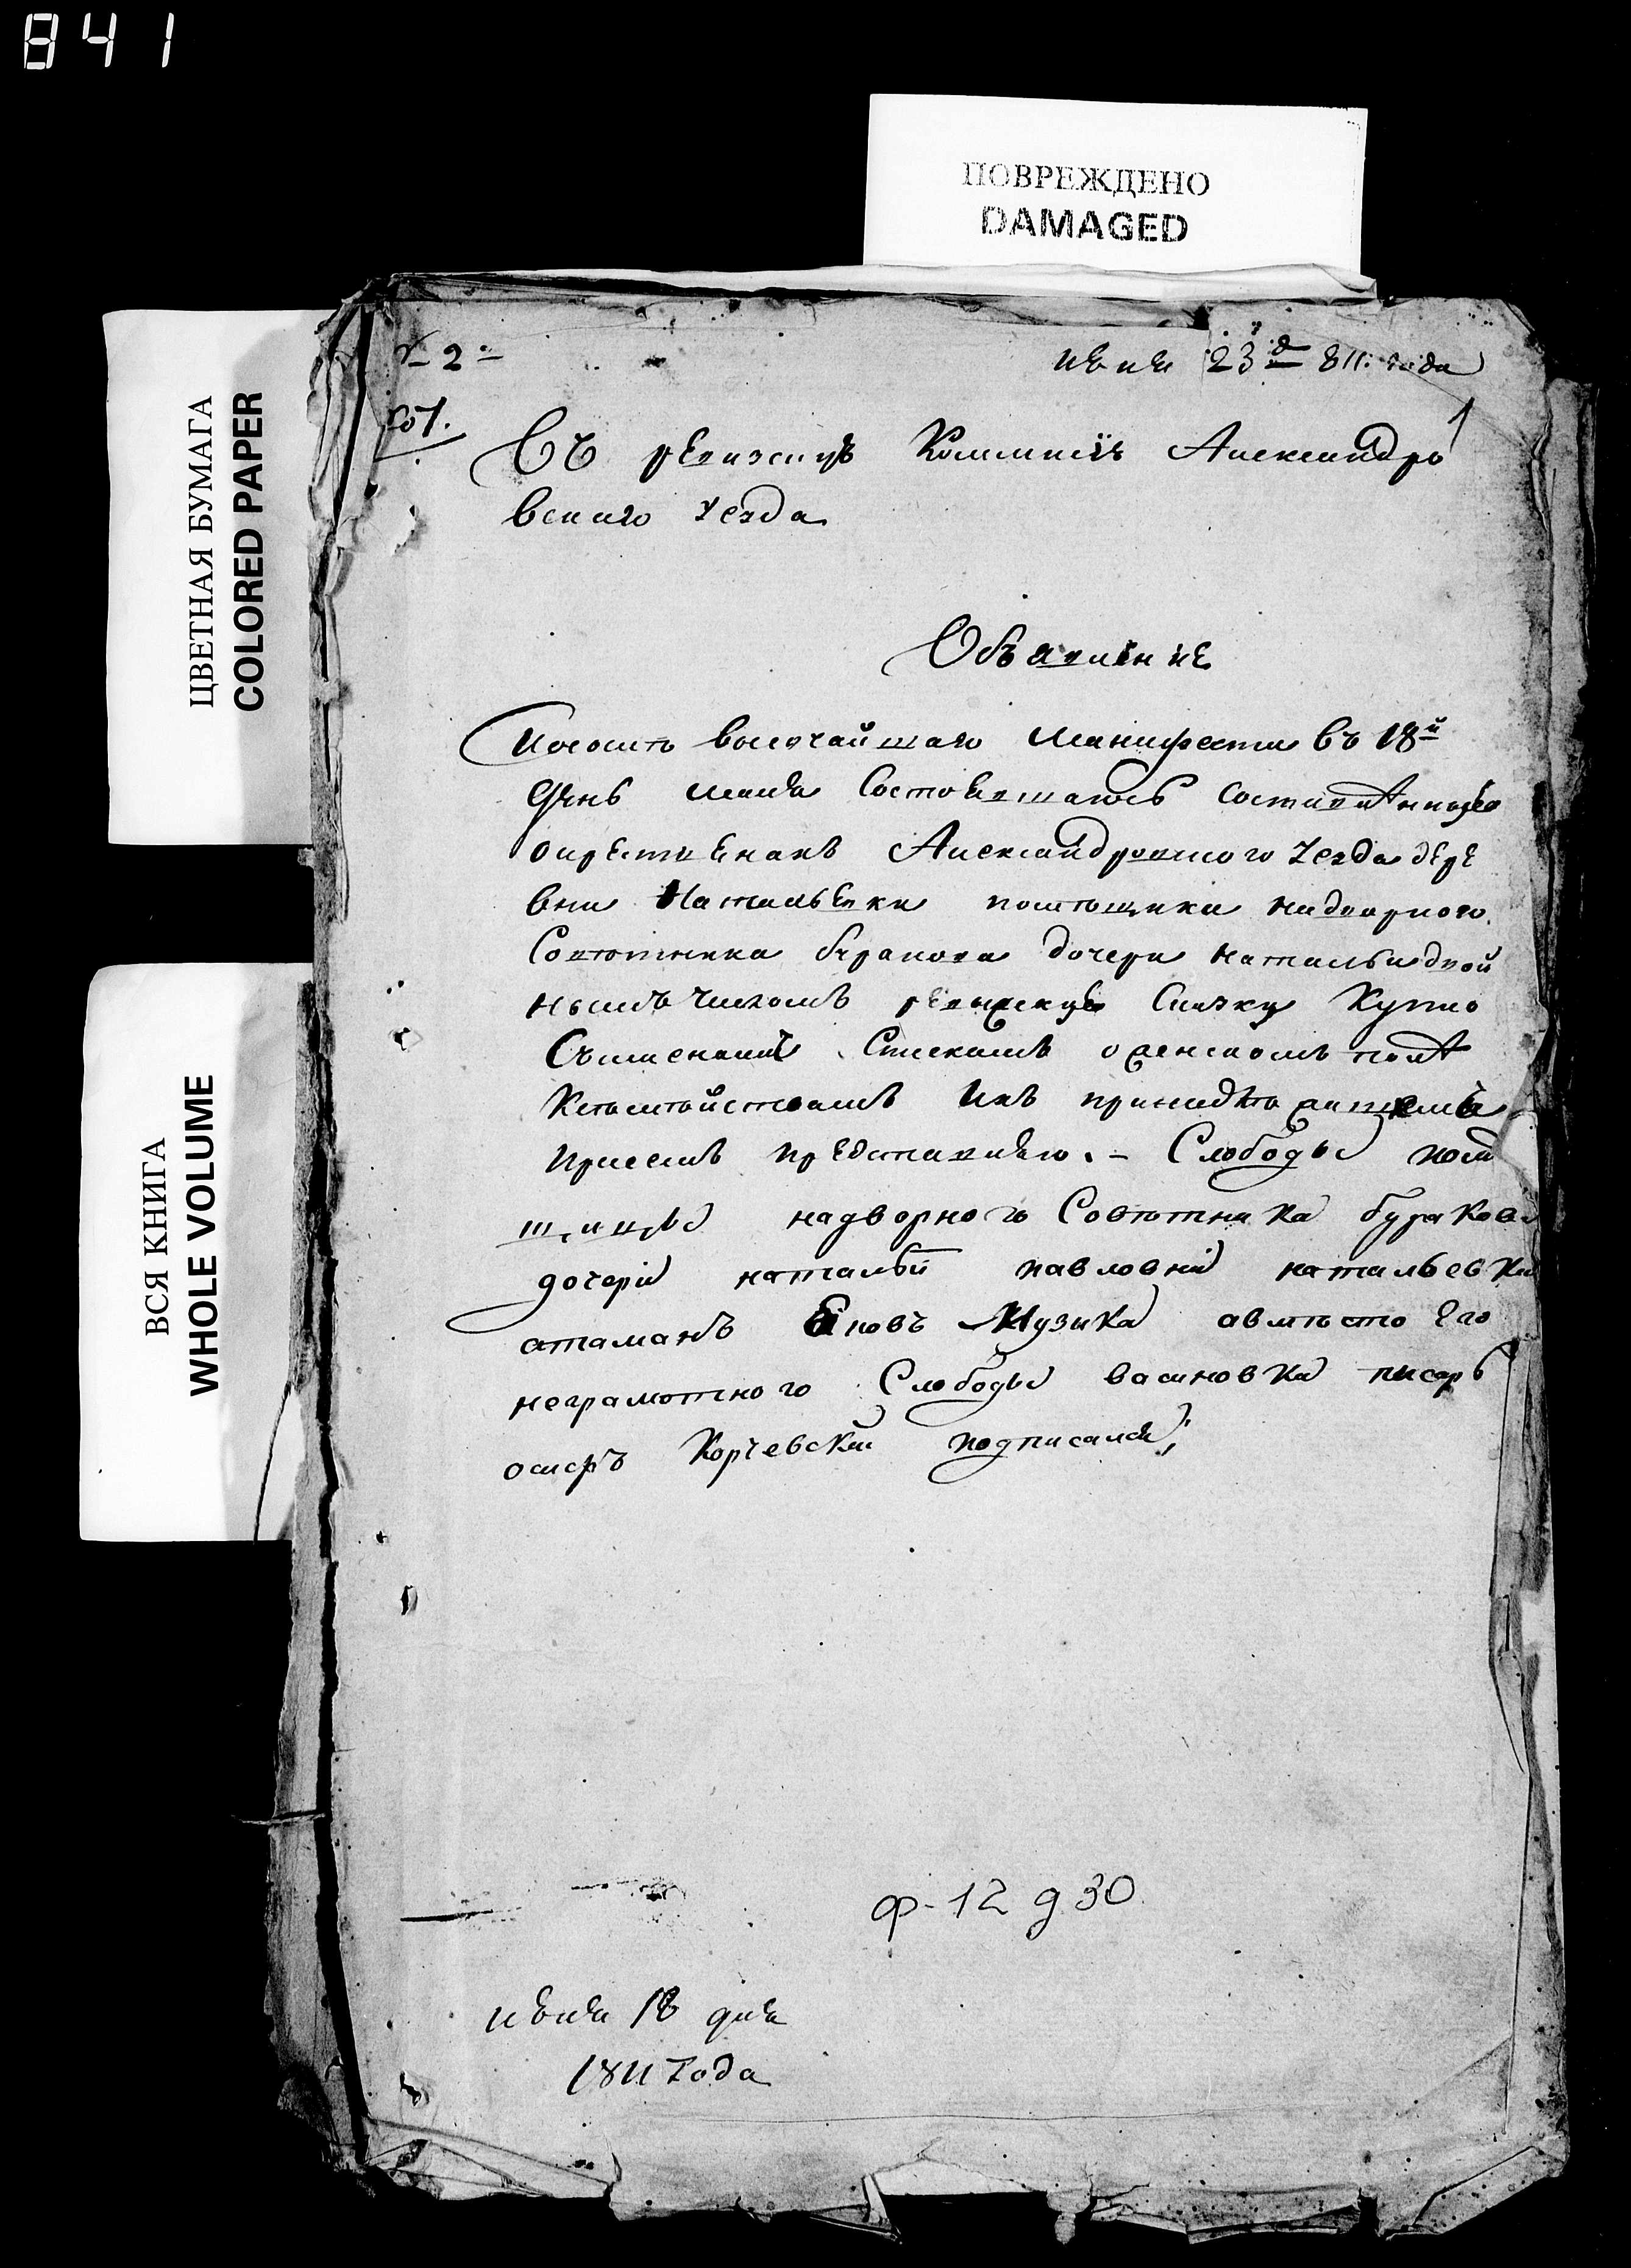 841
ПОВРЕЖДЕНО
DAMAGED
ЦВЕТНАЯ БУМАГА
COLORED PAPER
ВСЯ КНИГА
WHOLE VOLUME
№ 2
июня 23 д 811: года
1
Въ ревизскую Коммисию Александро
вскаго уезда
Объявление
высочайшаго манифеста въ 18й
день маия Состоявшагось составленную
окрестьянахъ Александровского уезда дере
вни Натальевки помѣщики надворного
Совѣтника буракова дочери натальи двой
нымъ числомъ ревизскую Сказку Купно
Списками оженскомъ полѣ
присемъ представляю. - Слободы помѣ
щицы надворного Совѣтника буракова
дочери натальи павловни натальевки
атаманъ Музика авмѣсто Его
неграмотного Слободы васиновки писарь
Корчевски подписался;
ф-12 д 30
июня 18 дня
1811 года